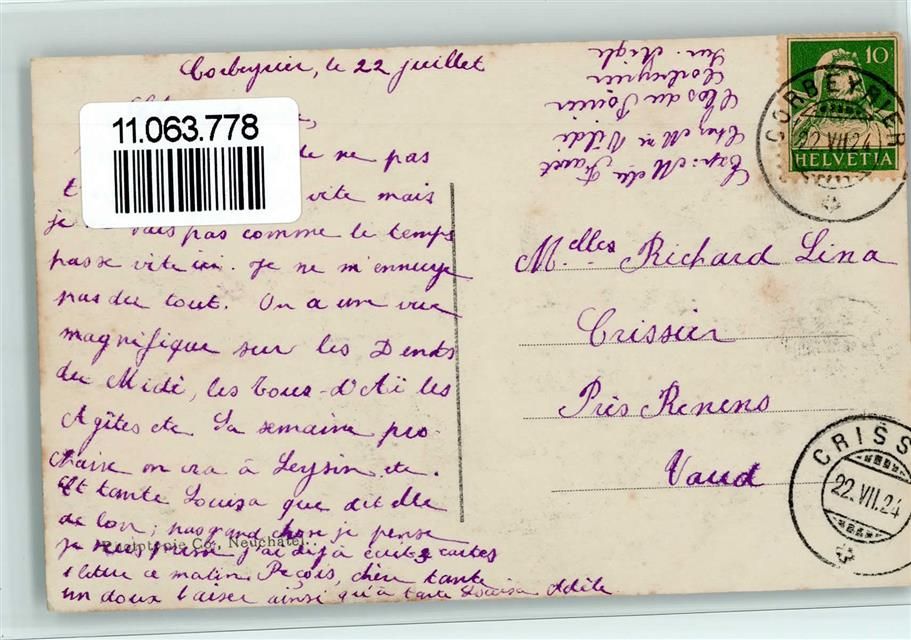 Corbeyrier, le 22 juillet
11.063.778
de ne pas
vite mais
je vais pas comme le temps
passe vite ici. Je ne m'ennuye
pas du tout. On a un vue
magnifique sur les Dents
du Midi, les Tours-d'Aï les
Agites etc La semaine pro-
chaine on ira à Leysin etc.
Et tante Louisa que dit elle
de bon; pas grand chose je pense
je j'ai déjà écrit 3 cartes
1 lettre ce matin. Reçois, chère tante
un doux baiser ainsi qu'à tante Louisa Adèle
Phototypie Co., Neuchâtel
Exp: Mlle Favet
Chez Mme Vildi
Clos du Poirier
Corbeyrier
sur Aigle
10
HELVETIA
CORBEYRIER
22.VII.24
Melles Richard Lina
Crissier
Près Renens
Vaud
CRISS
22.VII.24